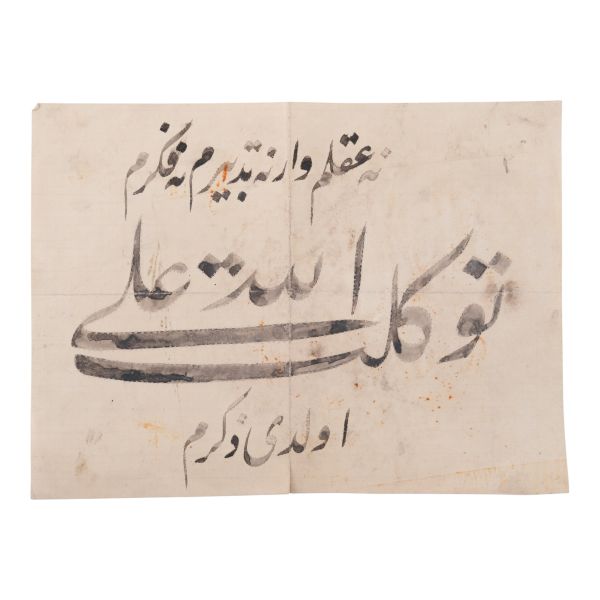 نه عقلم وار نه تدبيرم نه فكرم
توكلت على الله
اولدى ذكرم